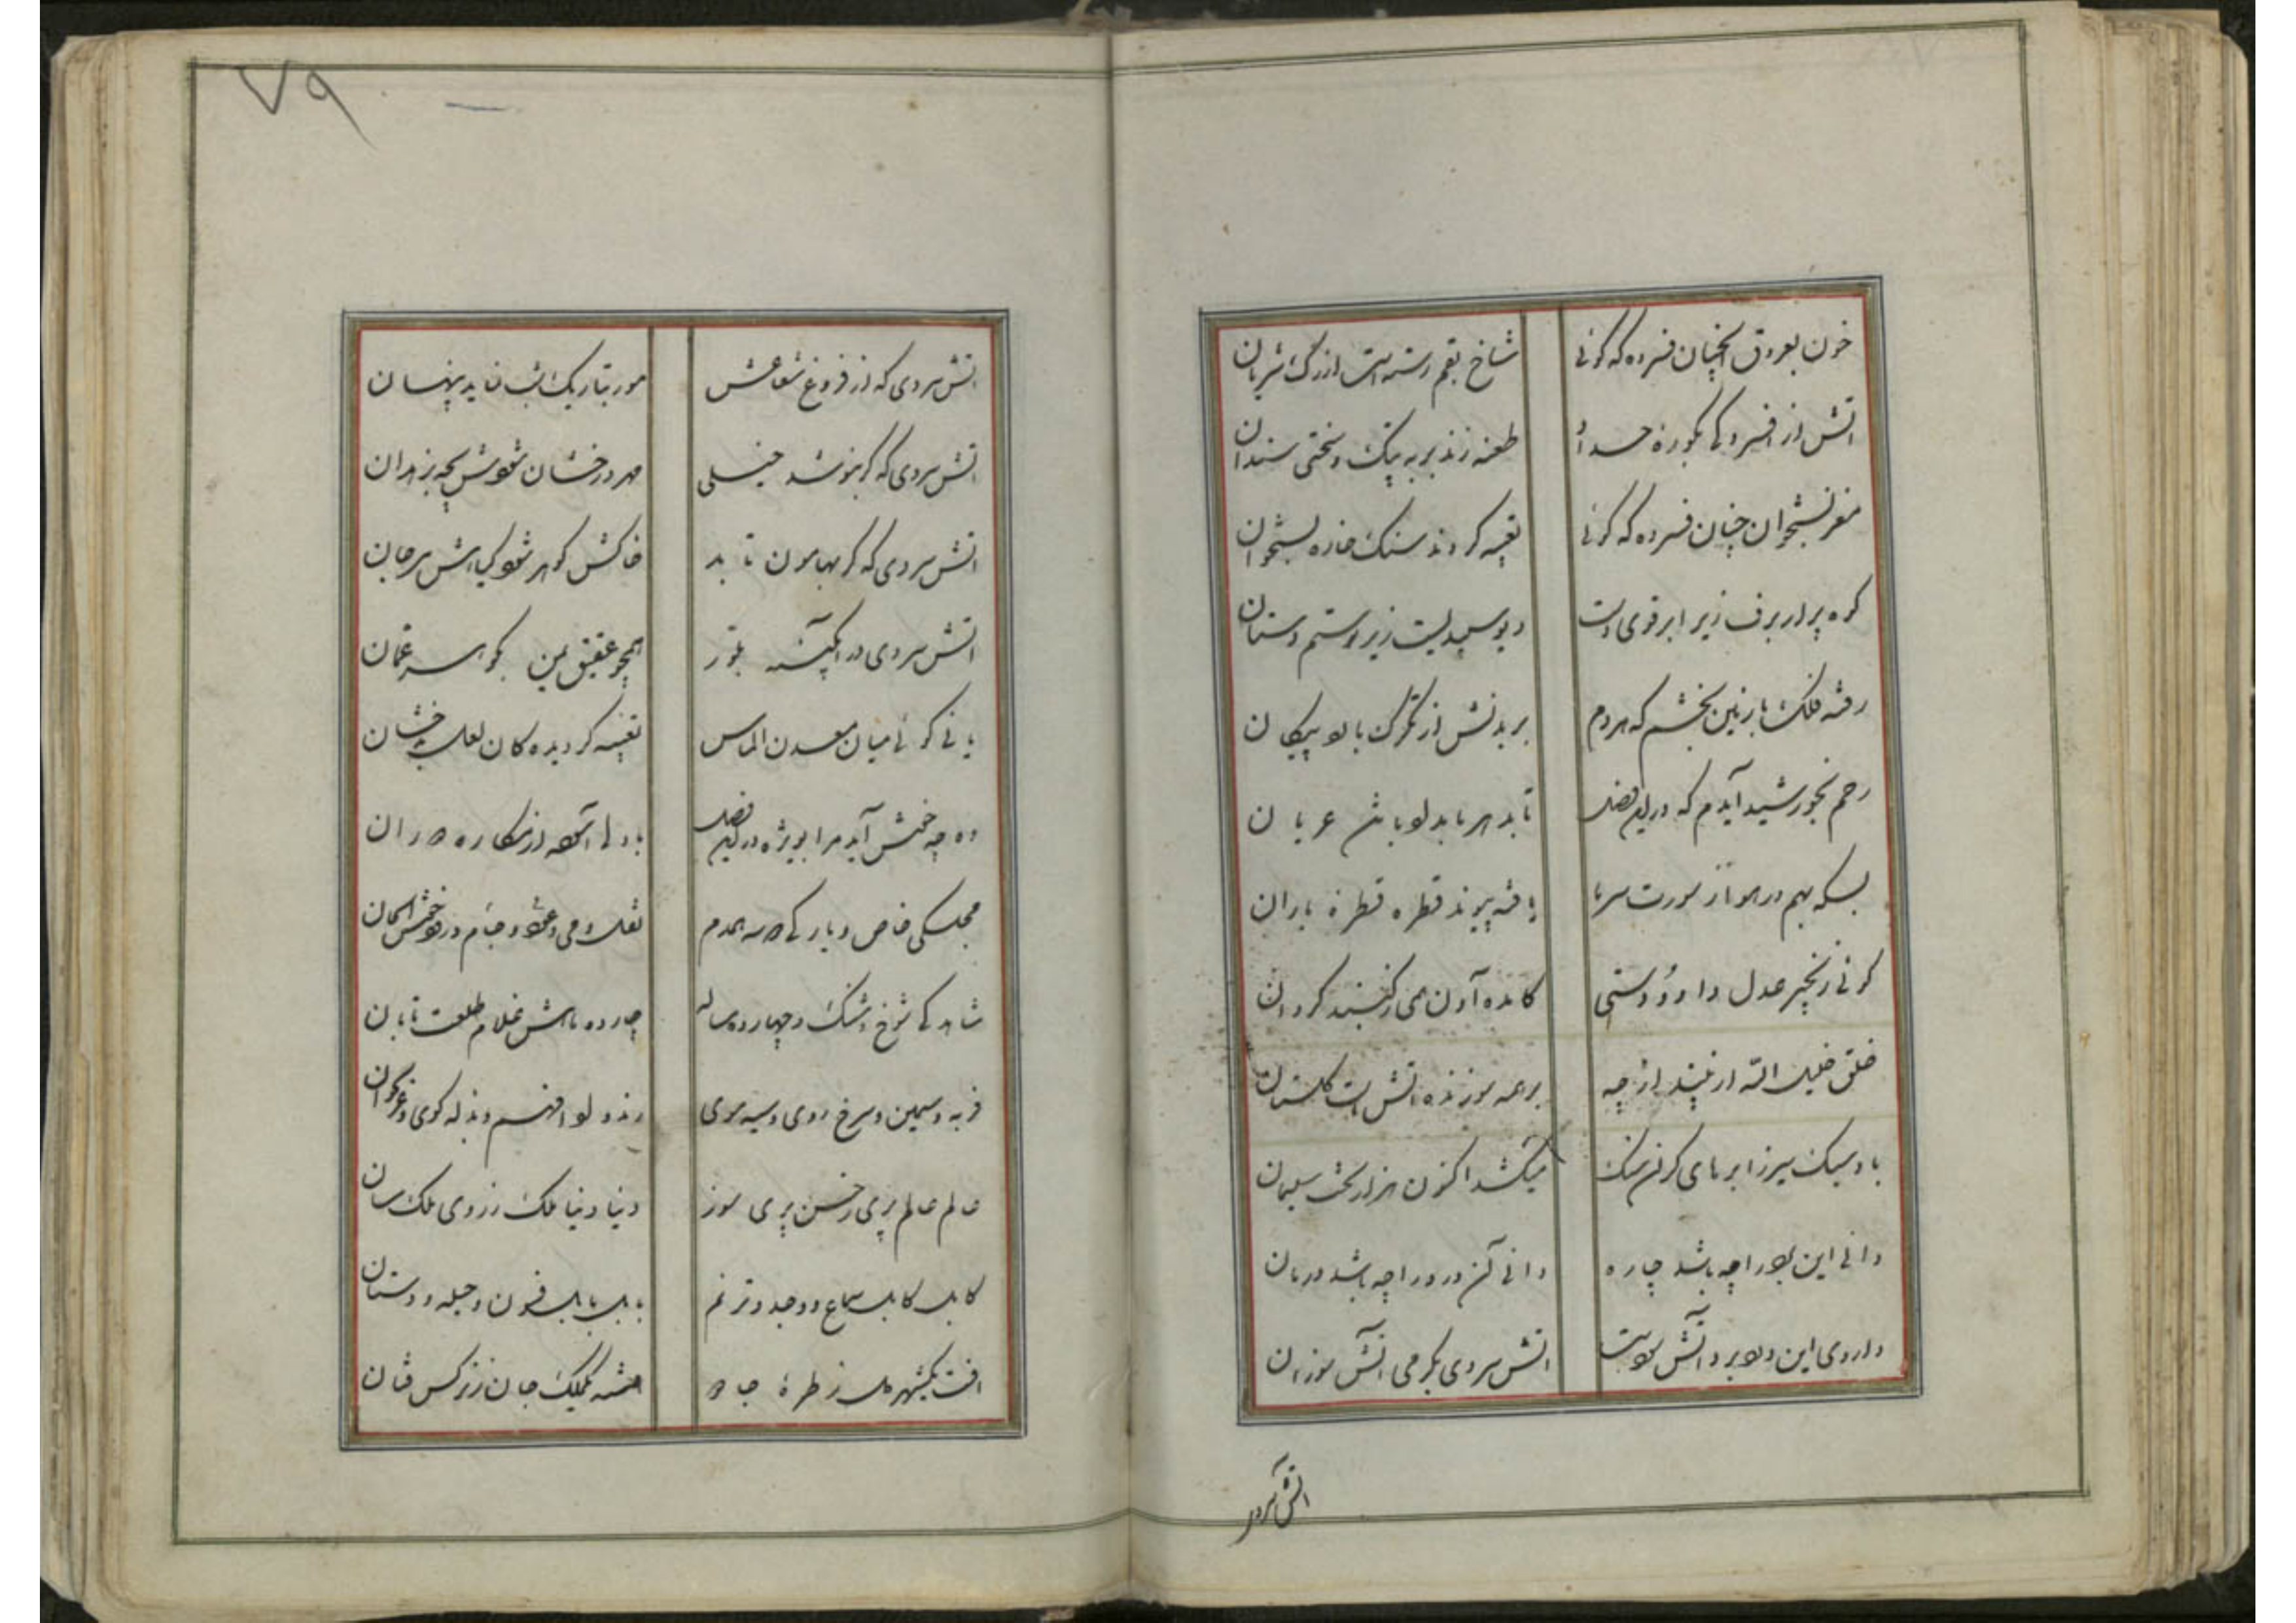 خون بعروق آنچنان فسرده که گوئی شاخ بقم رسته است از رگ شریان
آتش از افسردگی بکوره حداد طعنه زند بر به پتک و سختی سندان
مغز ستخوان چنان فسرده که گوئی تعبیه کردند سنک خاره بستخوان
کوه پر از برف زیر ابر قوی دست دیو سپید است زیر رستم دستان
رفته فلک با زمین بخشم که هر دم بر بدنش از تگرک بارد پیکان
رحم بخورشید آیدم که درین فصل تابد هر بامداد با تن عریان
بسکه بهم در هوا ز سورت سرما یافته پیوند قطره قطره باران
گوئی زنجیر عدل داور دوستی کانده آون همی ز گنبد گردان
خلق خلیل الله ار نیند از چه بر همه سوزنده آتش است گلستان
باد سبک سیر ز ابرهای گران سنک میکشد اکنون هزار تخت سلیمان
دانی این درد را چه باشد چاره دانی آن درد را چه باشد درمان
داروی این درد برد آتش سرد است آتش سردی بگرمی آتش سوزان
آتش سردی
٧٩
آتش سردی که از فروغ شعاعش مور بتاریک شب نماید پنهان
آتش سردی که گر بنوشد حبلی مهر درخشان شودش بچه بزهدان
آتش سردی که گر بهامون تابد خاکش گوهر شود گیاهش مرجان
آتش سردی در آبگینه بلور همچو عقیق یمن بگوهر عمان
یا نی گوئی میان معدن الماس تعبیه گردیده کان لعل بدخشان
وه چه خوش آید مرا بویژه درین فصل با دلی آسوده از مکاره دوران
مجلسکی خاص و یارکی دو سه همدم نقل و می و عود و جام و رود خوش الحان
شاهدکی شوخ و شنک و چهارده ساله چارده ماهش غلام طلعت تابان
فربه و سیمین و سرخ روی و سیه موی رند و ادافهم و بذله گوی و غزلخوان
عالم عالم پری ز حسن پری سوز دنیا دنیا ملک ز روی ملک سان
کابل کابل سماع و وجد و ترنم بابل بابل فسون و حیله و دستان
آفت یکشهر دل ز طره جادو فتنه یکملک جان ز نرکس فتان